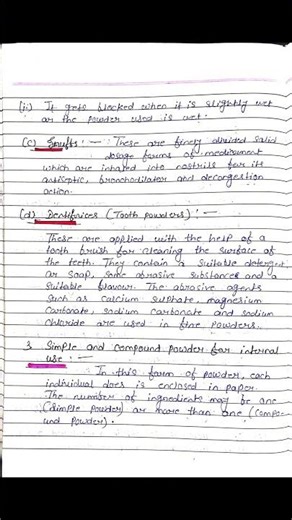 (ii) It gets blocked when it is slightly wet
or the powder used is wet.
(c) Snuffs : — These are finey divided solid
dosage forms of medicament
which are inhaled into nostrils for its
antiseptic, bronchodilator and decongestion
action.
(d) Dentifrices (Tooth powders) : —
These are applied with the help of a
tooth brush for cleaning the surface of
the teeth. They contain a suitable detergent
or soap, some abrasive substances and a
suitable flavour. The abrasive agents
such as calcium sulphate, magnesium
carbonate, sodium carbonate and sodium
chloride are used in fine powders.
3. Simple and compound powder for internal
use : —
In this form of powder, each
individual does is enclosed in paper.
The number of ingredients may be one
(simple powder) or more than one (compo-
und powder).